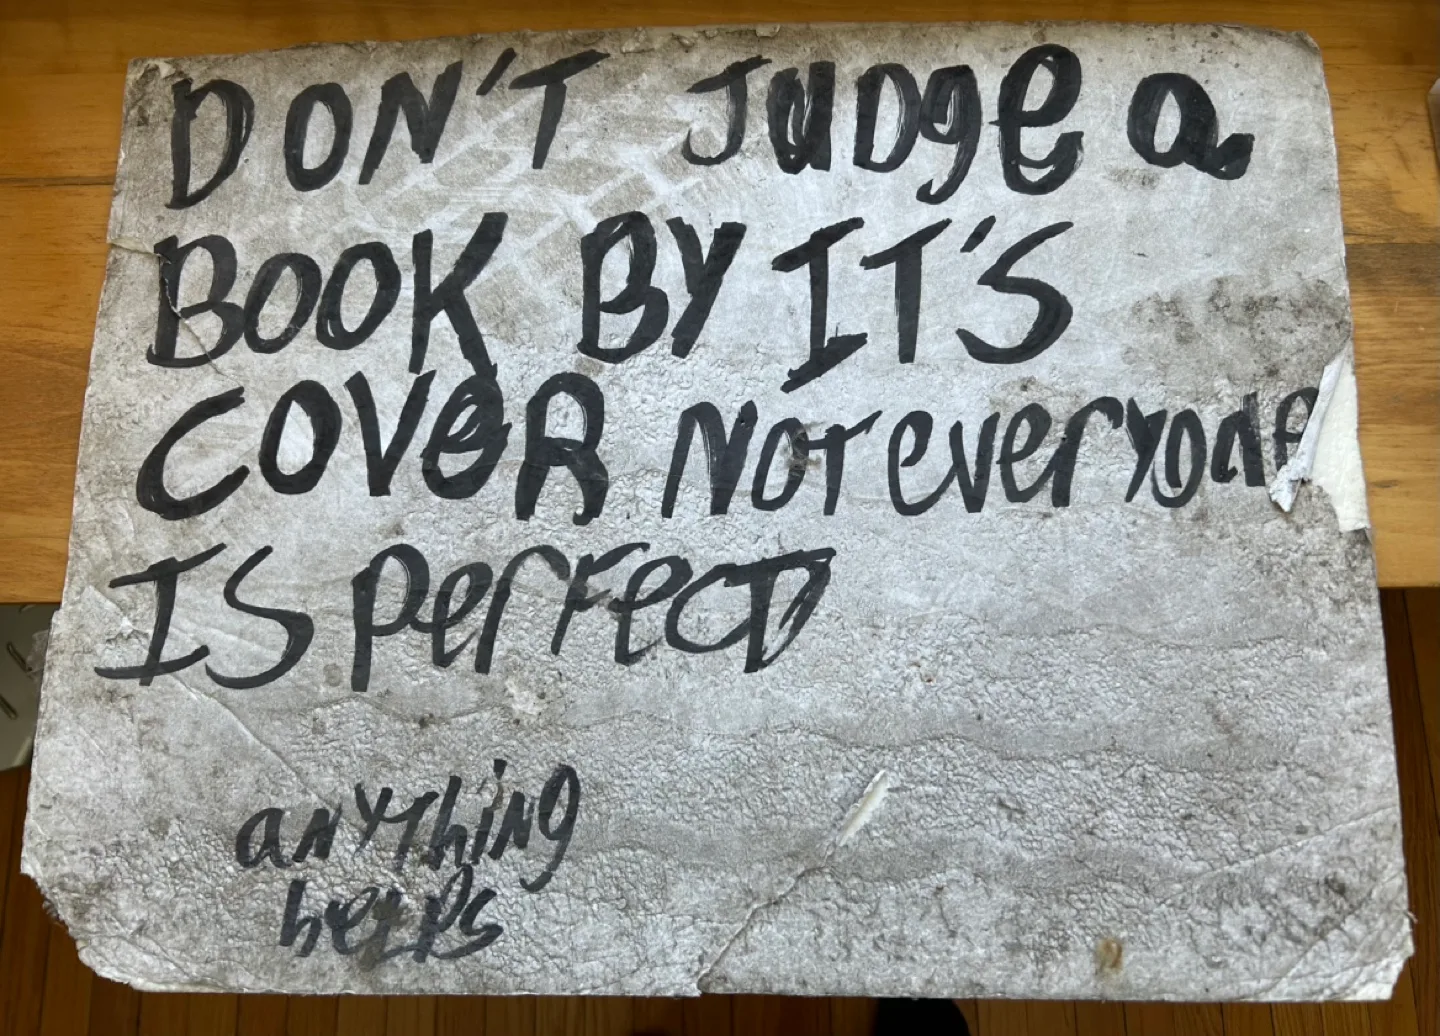 DON'T JUDge a
BOOK BY IT'S
COVER NOT everyone
IS PerFecT
anyThiNg
heLPs